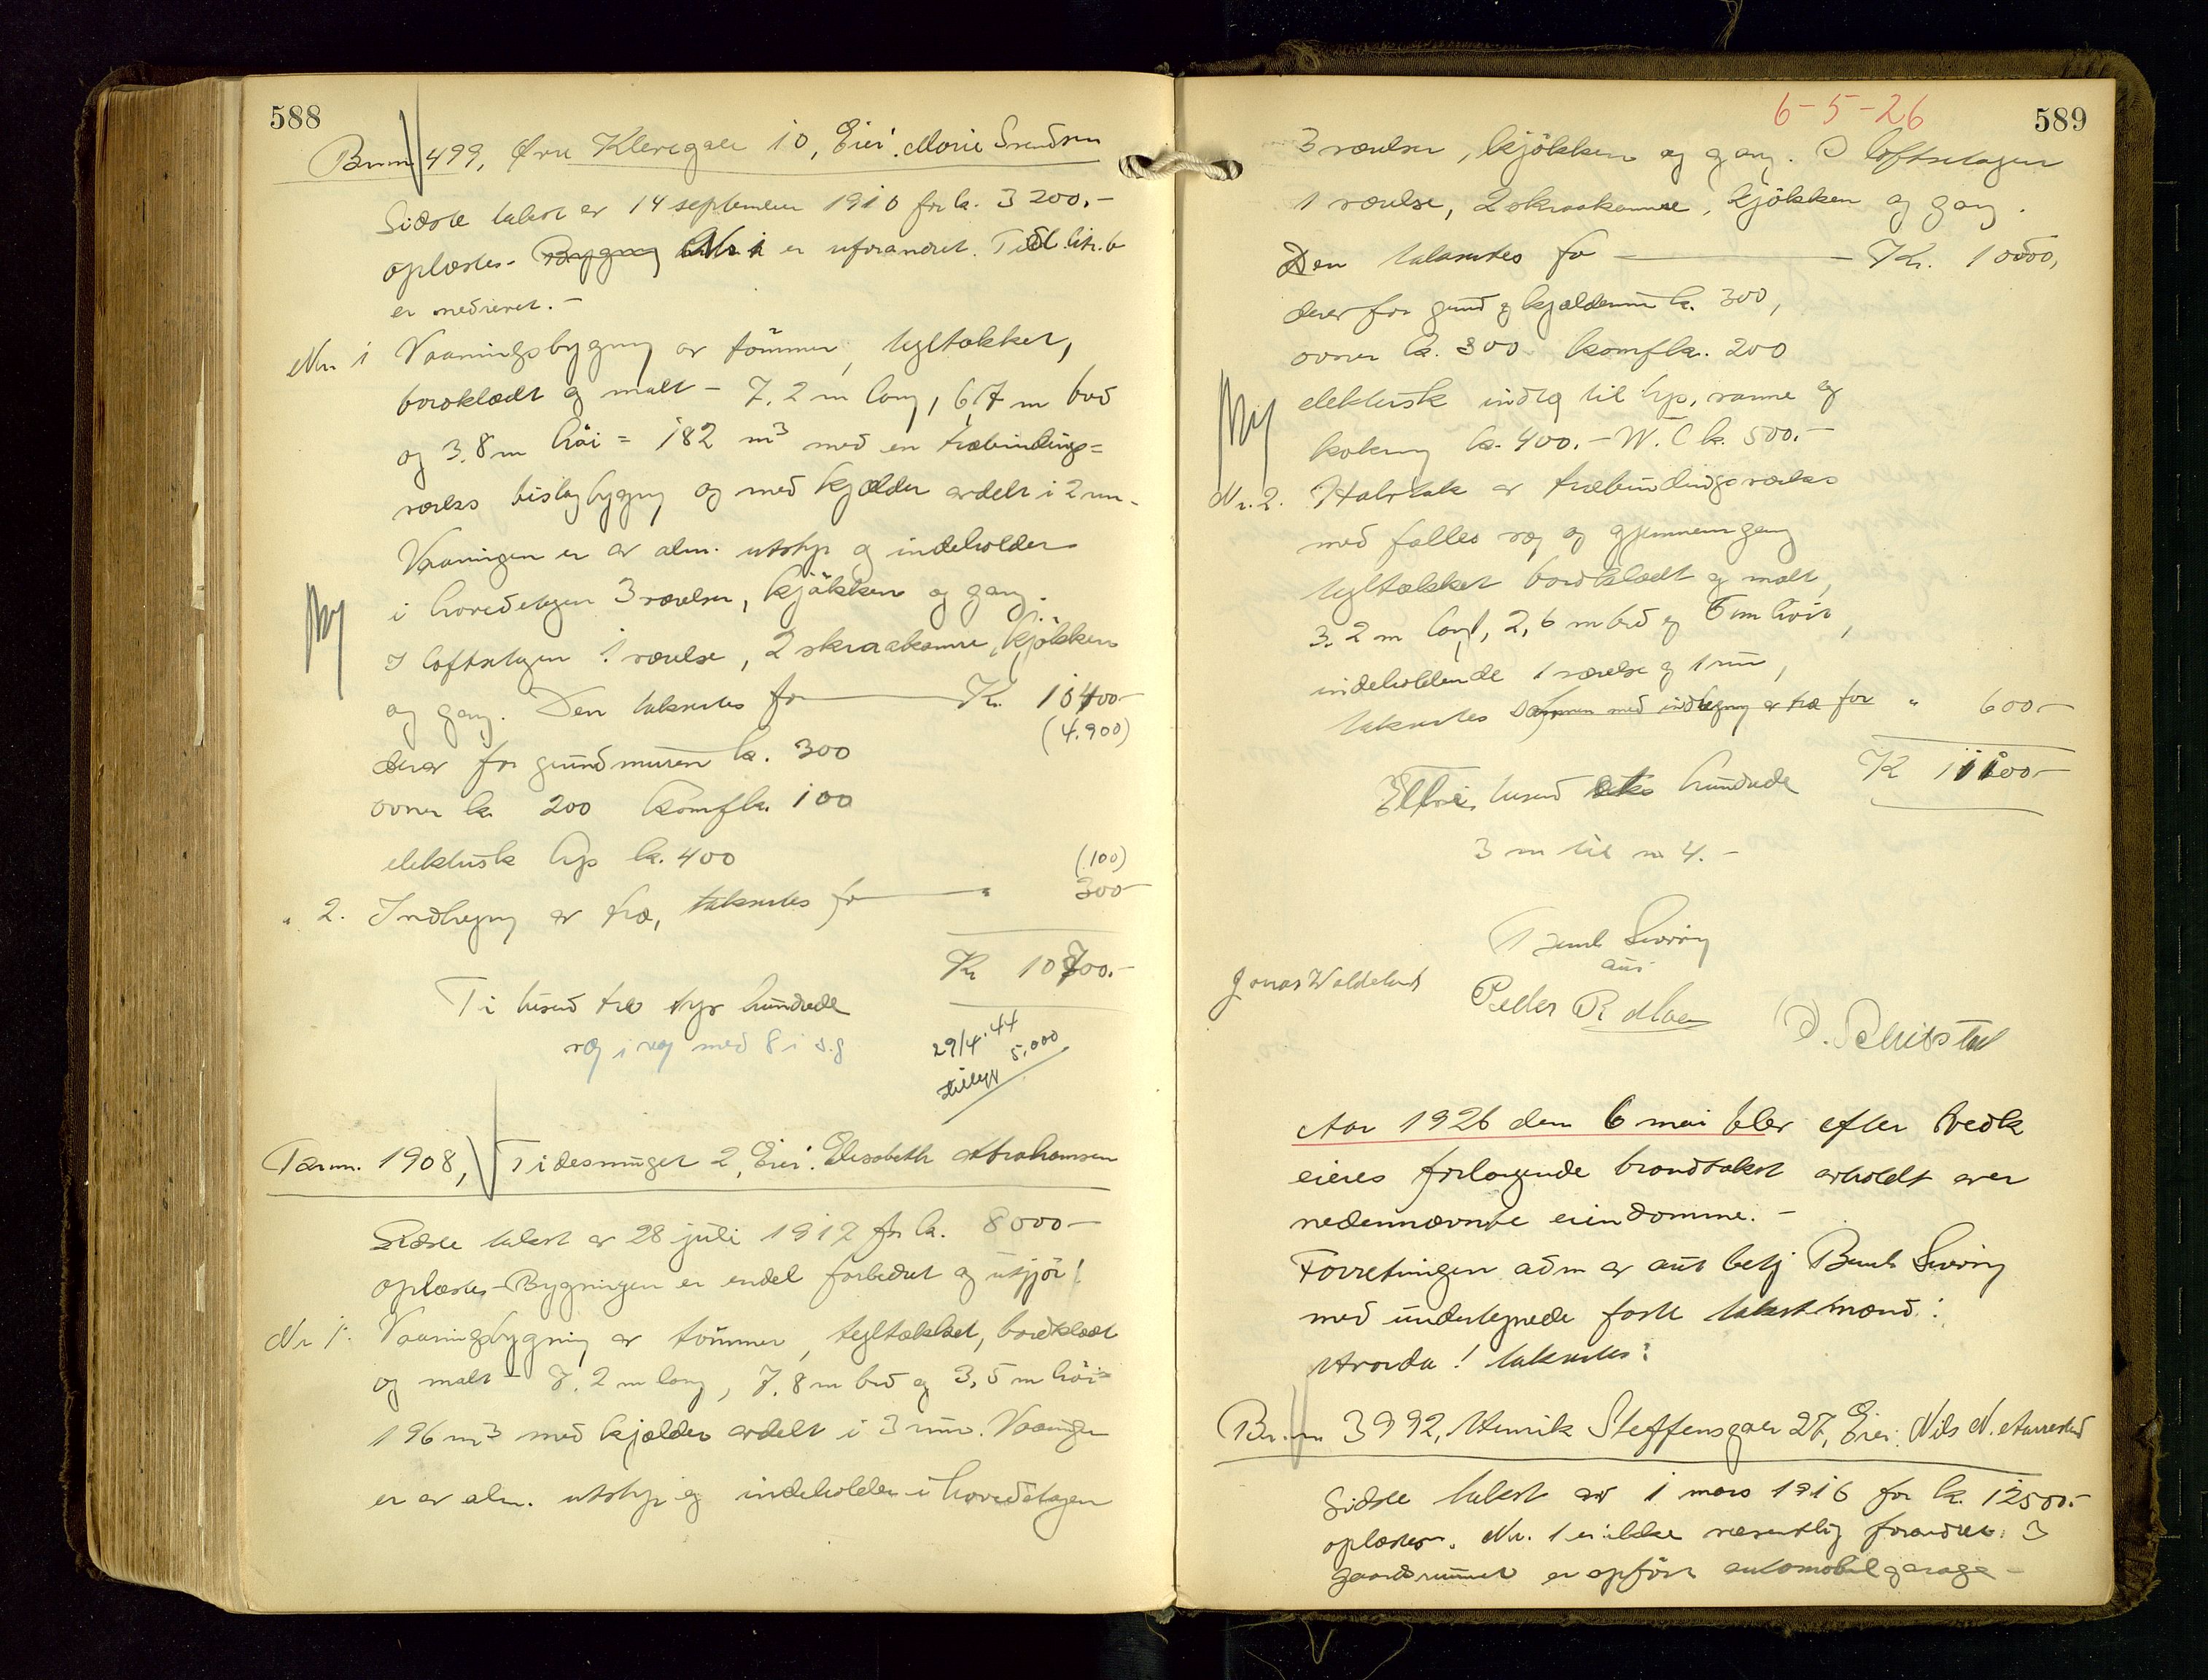 588
Br.nr. 499, Øvre Klevegate 10, Eier: Marie Svendsen
Sidste takst av 14 september 1910 for kr. 3200,-
oplæstes. Bygning Nr 1 er uforandret. Tidl. litr. b
er nedrevet.-
Nr. 1 Vaaningsbygning av tømmer, tegltækket,
bordklædt og malt - 7,2 m lang, 6,7 m bred
og 3,8 m høi = 182 m³ med en træbindings=
verks bislagbygning og med kjælder avdelt i 2 rum.
Vaaningen er av alm. utstyr og indeholder
i hovedetagen 3 værelser, kjøkken og gang.
I loftsetagen 1 værelse, 2 skraakamre, kjøkken
og gang. Den takseres for Kr. 10400-
(4.900)
derav for grundmuren kr. 300
ovner kr. 200 komf kr. 100
elektrisk lys kr. 400
(100)
" 2. Indhegning av træ, takseres for " 300-
Kr 10700.-
Ti tusend syv hundrede
væg i væg med 8 i s.g
29/4.44
tillegg 5.000
Tax.nr. 1908, Tidesmuget 2, Eier: Elisabeth Abrahamsen
Sidste takst av 28 juli 1917 for kr. 8000-
oplæstes-Bygningen er endel forbedret og utgjør:
Nr 1. Vaaningsbygning av tømmer, tegltækket, bordklædt
og malt - 7,2 m lang, 7,8 m bred og 3,5 m høi=
196 m³ med kjælder avdelt i 3 rum. Vaaningen
er av alm. utstyr og indeholder i hovedetagen
6-5-26
589
3 værelser, kjøkken og gang. I loftsetagen
1 værelse, 2 skraakamre, kjøkken og gang.
Den takseres for Kr. 10500,
derav for grund og kjældermur kr. 300,
ovner kr. 300 komf kr. 200
elektrisk indlæg til lys, varme og
kokning kr. 400.- W.C kr. 500.-
Nr. 2. Halvtak av træbindingsverks
med fælles væg og gjennemgang
tegltækket bordklædt og malt,
3,2 m lang, 2,6 m bred og 5 m høit,
indeholdende 1 værelse og 1 rum,
takseres sammen med indhegning av træ for " 600-
Kr 11100-
Elleve tusend et hundrede
3 m til nr 4.-
Bernh Sivring
aut
Jonas Waldeland
Peder R. Moe
D. Schibstad
Aar 1926 den 6 mai blev efter vedk
eieres forlangende brandtakst avholdt over
nedennævnte eiendomme.-
Forretningen adm av aut betj Bernh Sivring
med undertegnede faste takstmænd:
Hvorda! takseres:
Br.nr 3992, Henrik Steffensgate 27, Eier: Nils N. Aarrestad
Sidste takst av 1 mars 1916 for kr. 12500.-
oplæstes. Nr. 1 er ikke væsentlig forandret. I
gaardsrummet er opført automobilgarage-